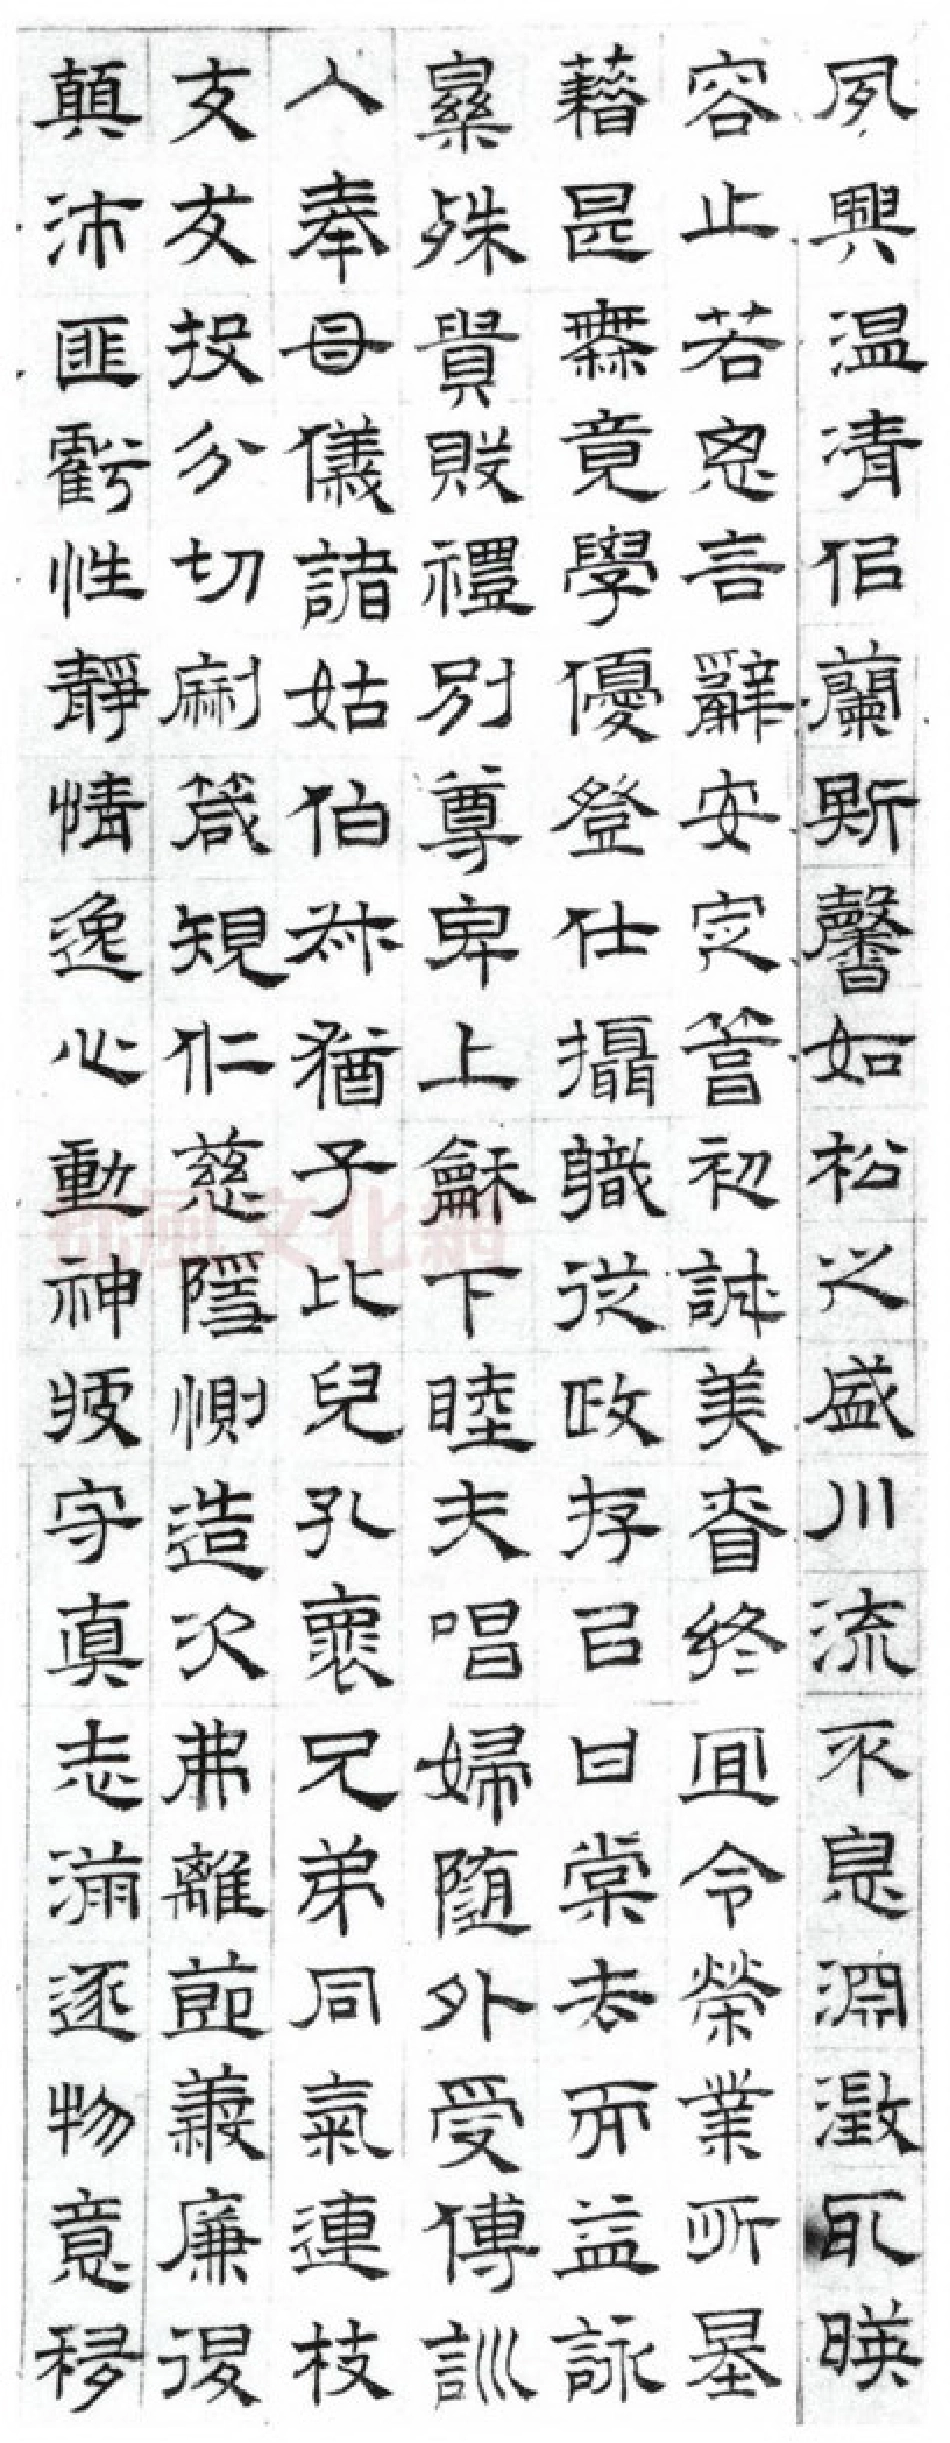 夙興温凊佀蘭斯馨如松之盛川流不息淵澂取暎
容止若思言辭安定篤初誠美昚終宜令榮業所基
藉甚無竟學優登仕攝職從政存以甘棠去而益詠
樂殊貴賤禮別尊卑上龢下睦夫唱婦隨外受傅訓
入奉母儀諸姑伯叔猶子比兒孔褱兄弟同氣連枝
交友投分切劘箴規仁慈隱惻造次弗離節義廉退
顛沛匪虧性靜情逸心動神疲守真志滿逐物意移